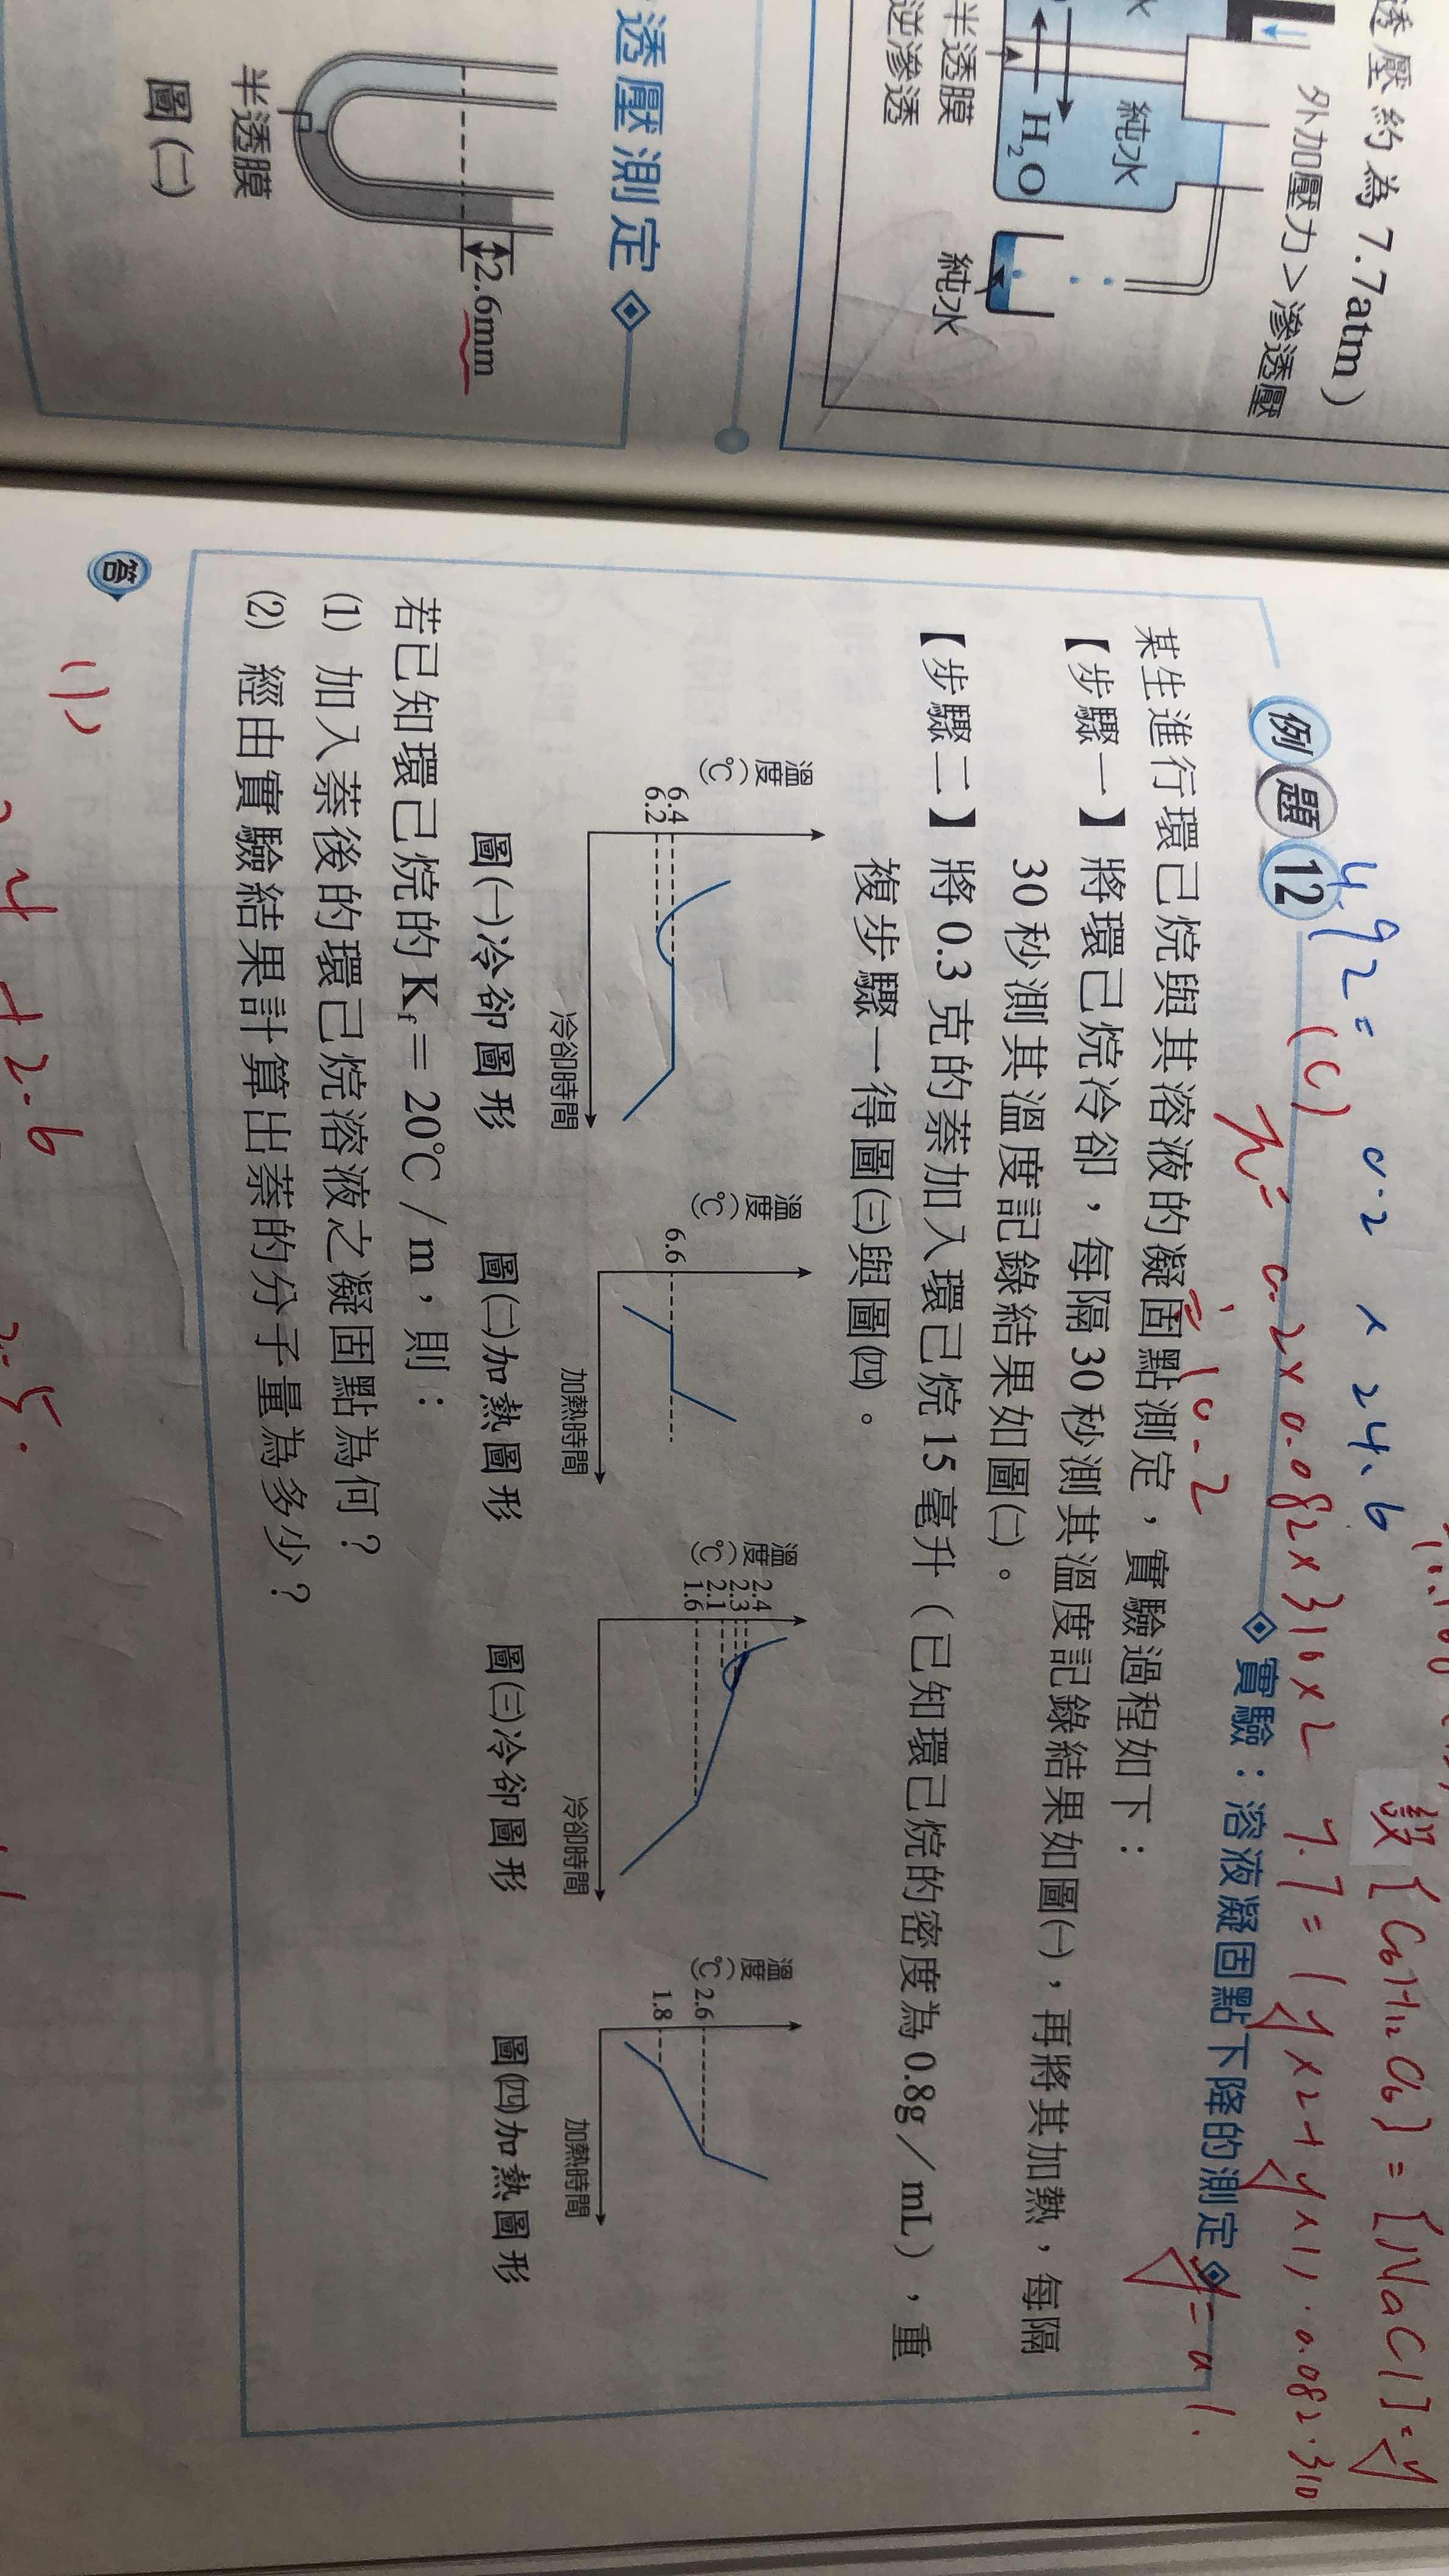 透壓約為7.7atm）
外加壓力＞滲透壓
純水
H₂O
純水
半透膜
逆滲透
透壓測定
2.6mm
半透膜
圖(二)
4.92=
0.2 × 24.6
(C)
h= 0.2×0.082×310×2
≒10.2
設[C₆H₁₂O₆]=[NaCl]=y
7.7=(y×2+y×1)·0.082·310
y=0.1
例題12
實驗：溶液凝固點下降的測定
某生進行環己烷與其溶液的凝固點測定，實驗過程如下：
【步驟一】將環己烷冷卻，每隔30秒測其溫度記錄結果如圖(一)，再將其加熱，每隔
30秒測其溫度記錄結果如圖(二)。
【步驟二】將0.3克的萘加入環己烷15毫升（已知環己烷的密度為0.8g／mL），重
複步驟一得圖(三)與圖(四)。
溫度(℃)
6.4
6.2
冷卻時間
圖(一)冷卻圖形
溫度(℃)
6.6
加熱時間
圖(二)加熱圖形
溫度(℃)
2.4
2.3
2.1
1.6
冷卻時間
圖(三)冷卻圖形
溫度(℃)
2.6
1.8
加熱時間
圖(四)加熱圖形
若已知環己烷的Kf＝20℃／m，則：
(1) 加入萘後的環己烷溶液之凝固點為何？
(2) 經由實驗結果計算出萘的分子量為多少？
答
(1)
+2.6